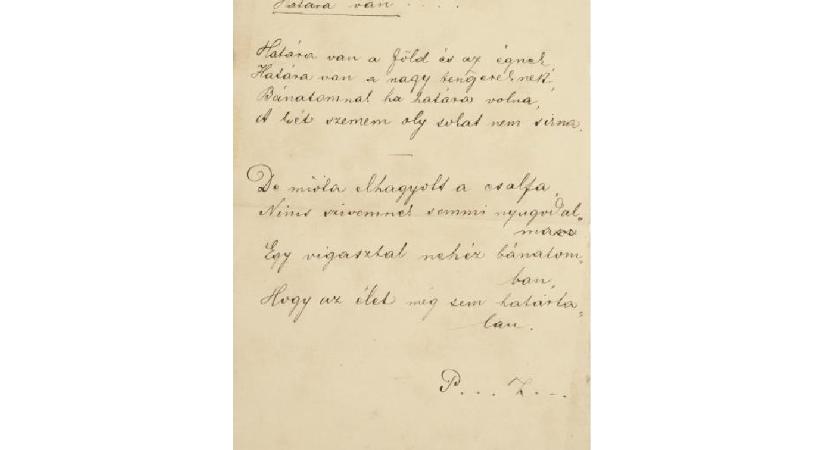 Határa van . . . .
Határa van a föld és az égnek,
Határa van a nagy tengereknek,
Bánatomnak ha határa volna,
A két szemem oly sokat nem sirna.
De mióta elhagyott a csalfa,
Nincs szivemnek semmi nyugodal-
masa
Egy vigasztal nehéz bánatom-
ban,
Hogy az élet még sem határta-
lan.
P. . . . Z. . . .